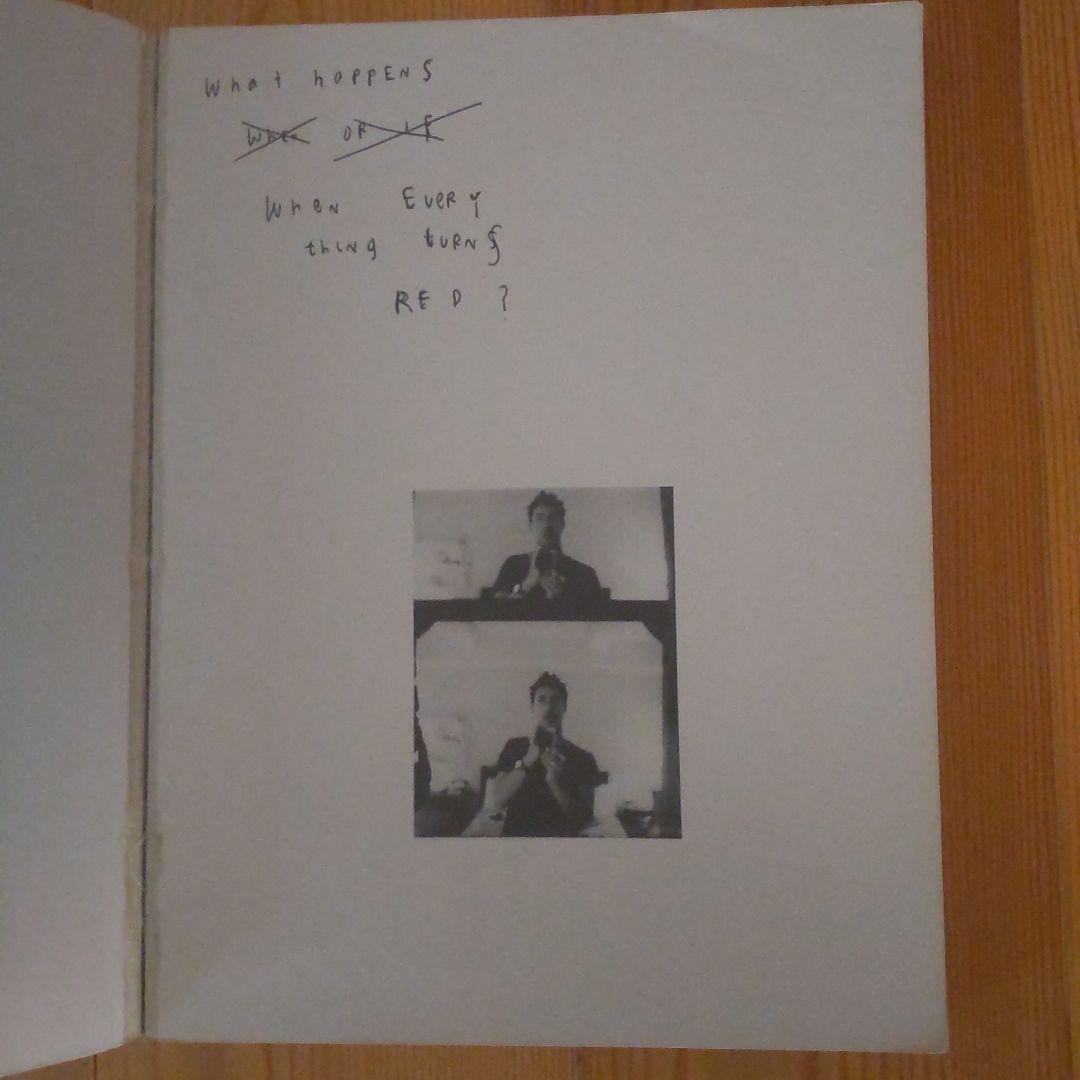 What hAPPENS
When OR IF
When EvERy
thiNg tURNS
RED ?